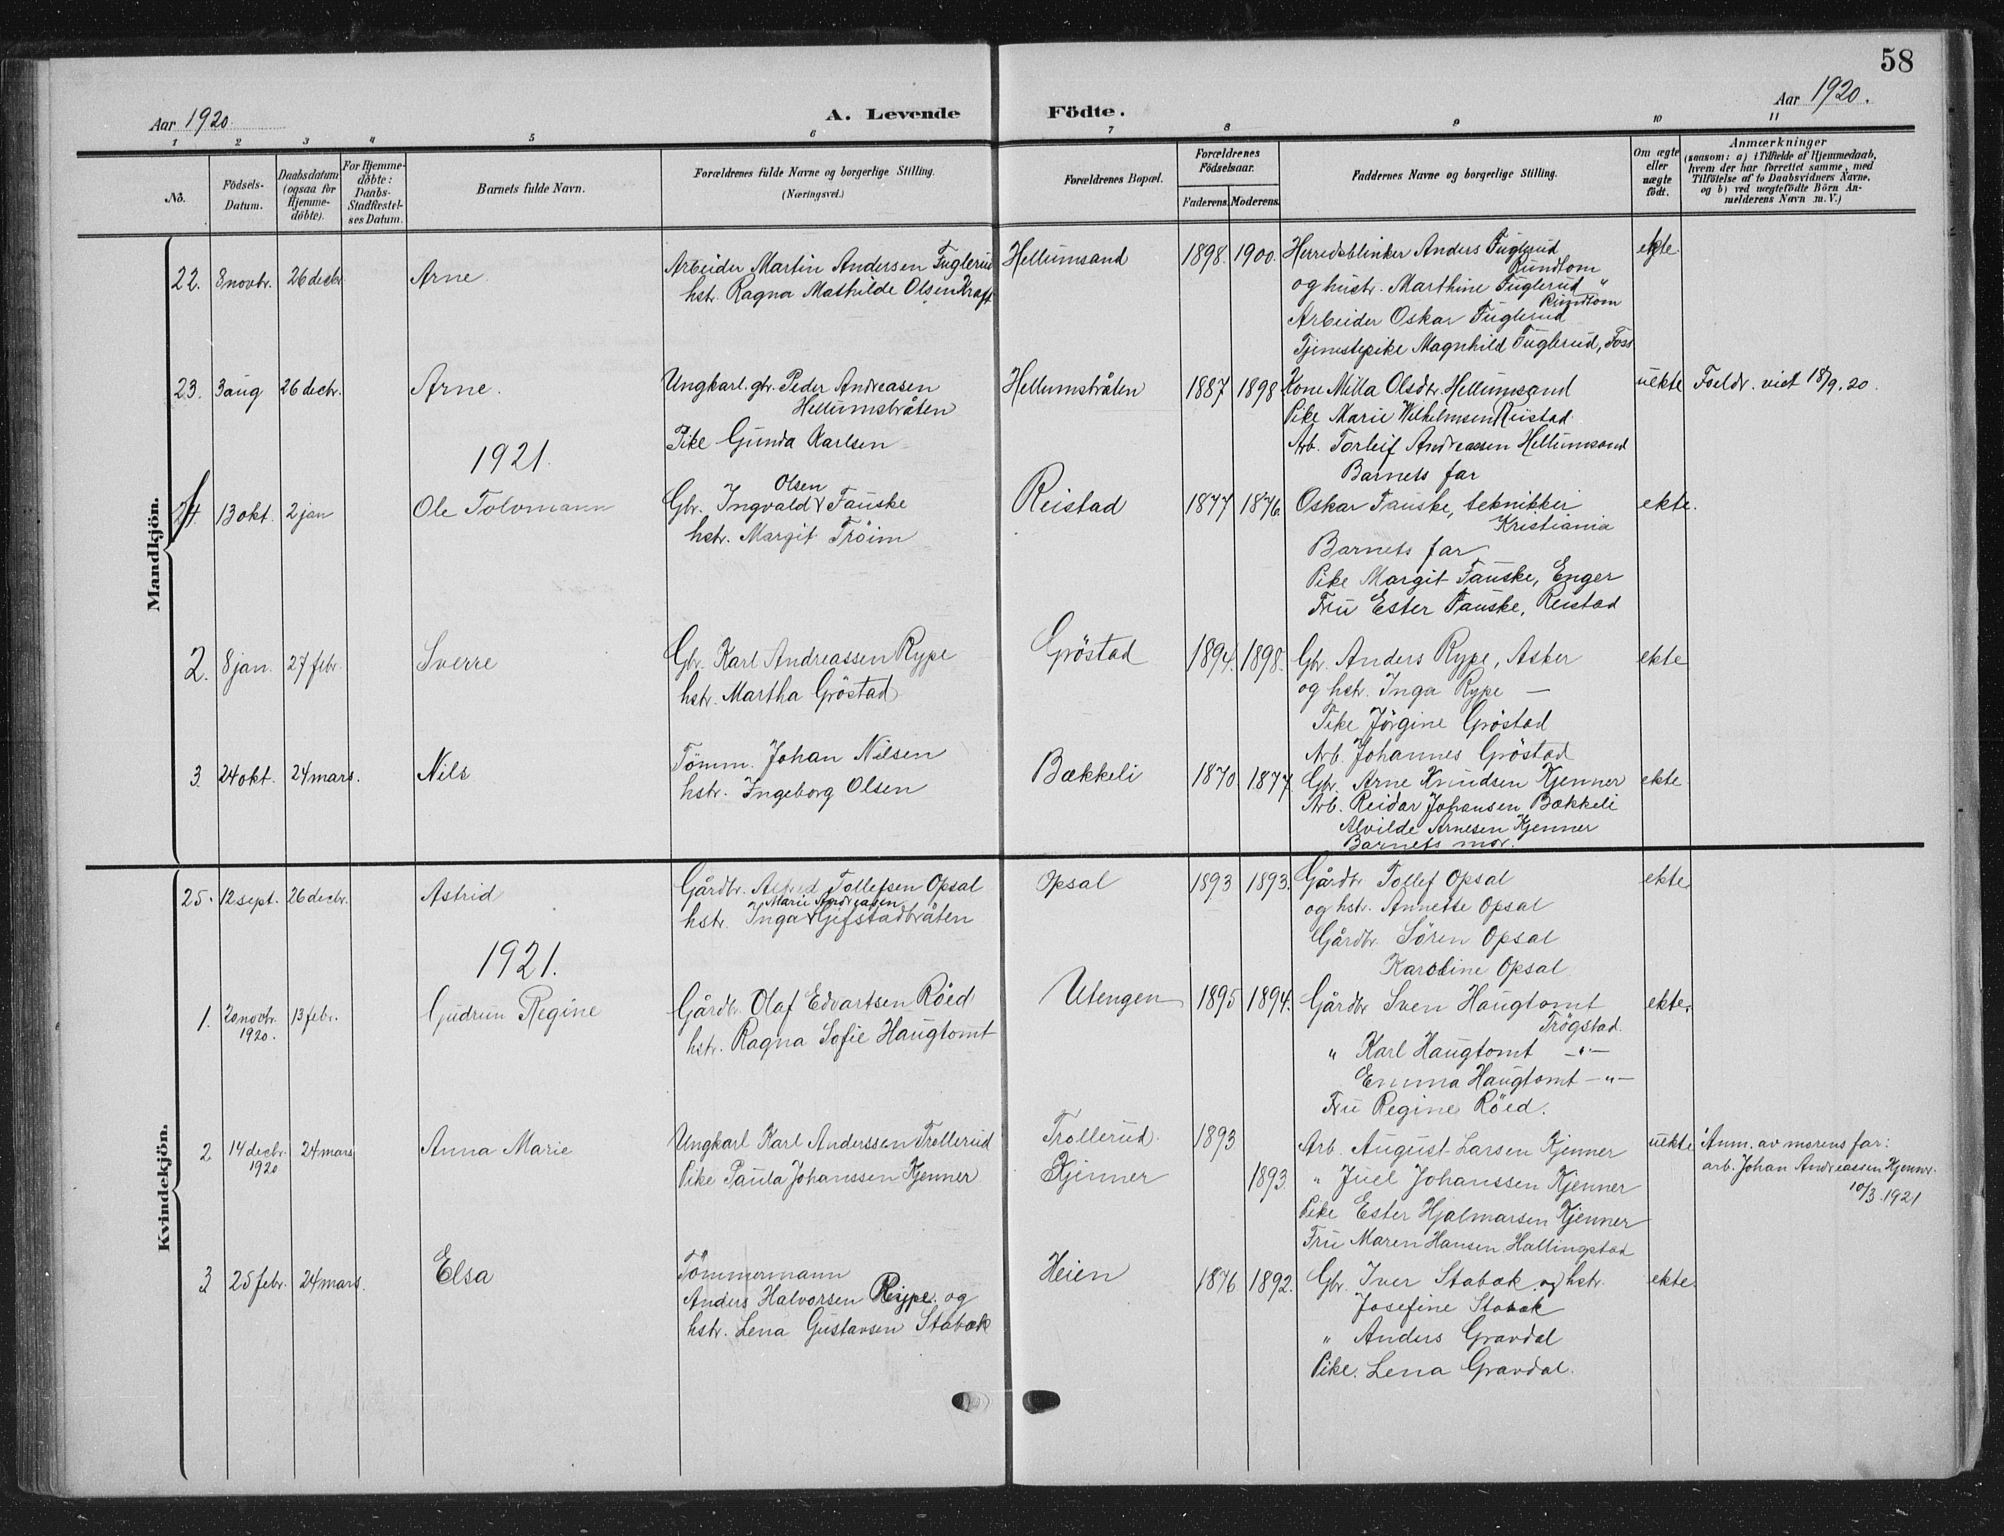 58
Aar 1920.
A. Levende Födte.
Aar 1920.
1 2 3 4 5 6 7 8 9 10 11
No.
Födsels-
Datum.
Daabsdatum
(ogsaa for
Hjemme-
döbte).
For Hjemme-
döbte:
Daabs-
Stadfæstel-
ses Datum.
Barnets fulde Navn.
Forældrenes fulde Navne og borgerlige Stilling.
(Næringsvei.)
Forældrenes Bopæl.
Forældrenes
Födselsaar.
Faderens. Moderens.
Faddernes Navne og borgerlige Stilling.
Om ægte
eller
uægte
født.
Anmærkninger
(saasom: a) i Tilfælde af Hjemmedaab,
hvem der har forrettet samme, med
Tilföielse af to Daabsvidners Navne,
og b) ved uægtefödte Börn An-
melderens Navn m. V.)
Mandkjön.
22. 8 novbr. 26 decbr. Arne
Arbeider Martin Andersen Fuglerud
hstr. Ragna Mathilde Olsen Kraft
Hellumsand 1898. 1900.
Herredsblinker Anders Fuglerud
Rundtom
og hustr. Marthine Fuglerud "
Rundtom
Arbeider Oskar Fuglerud
Tjenestepike Magnhild Fuglerud, Foss
ekte.
23. 3 aug 26 decbr. Arne.
Ungkarl. gbr. Peder Andreasen
Hellumsbråten
Pike Gunda Karlsen
Hellumsbråten 1887 1898
Kone Milla Olsdtr. Hellumsand
Pike Marie Wilhelmsen Reistad
Arb. Torleif Andreassen Hellumsand
Barnets far
uekte Foeldr. viet 18/9. 20.
1921.
13 okt. 2 jan Ole Tolvmann
Olsen
Gbr. Ingvald v Fauske
hstr. Margit Tröim
Reistad 1877 1876.
Oskar Fauske, teknikker
Kristiania
Barnets far
Pike Margit Fauske, Enger
Fru Ester Fauske, Reistad
ekte.
2. 8 jan. 27 febr. Sverre
Gbr. Karl Andreassen Rype
hstr. Martha Gröstad
Gröstad 1894. 1898.
Gbr. Anders Rype, Asker
og hstr. Inga Rype —
Pike Jörgine Gröstad
Arb. Johannes Gröstad
ekte
3. 24 okt. 24 mars. Nils
Tömm. Johan Nilsen
hstr. Ingeborg Olsen
Bækkeli 1870. 1877
Gbr. Arne Knudsen Kjenner
Arb. Reidar Johansen Bækkeli
Alvilde Arnesen Kjenner
Barnets mor.
ekte
Kvindekjön.
25. 12 sept. 26 decbr. Astrid
Gårdbr. Alfred Tollefsen Opsal
Marie Andreasen
hstr. Inga v Gifstadbråten
Opsal 1893 1893.
Gårdbr Tollef Opsal
og hstr. Annette Opsal
Gårdbr. Sören Opsal
Karoline Opsal
ekte
1921.
1. 20 novbr. 13 febr. Gudrun Regine
1920.
Gårdbr. Olaf Edvartsen Röed
hstr. Ragna Sofie Haugtomt
Utengen 1895 1894.
Gårdbr Sven Haugtomt
Trögstad.
" Karl Haugtomt —"—
Emma Haugtomt —"—
Fru Regine Röed.
ekte.
2 14 decbr. 24 mars Anna Marie
1920
Ungkarl Karl Anderssen Trollerud
Pike Paula Johanssen Kjenner
Trollerud. 1893
Kjenner 1893.
Arb. August Larsen Kjenner
" Juel Johanssen Kjenner
Pike Ester Hjalmarsen Kjenner
Fru Maren Hansen Hallingstad
uekte
Anm. av morens far:
arb. Johan Andreassen Kjenner
10/3. 1921
3 25 febr. 24 mars. Elsa
Tömmermann
Anders Halvorsen Rype. og
hstr. Lena Gustavsen Stabæk
Heien 1876 1892.
Gbr. Iver Stabæk og hstr.
Josefine Stabæk
" Anders Gravdal
Pike. Lena Gravdal.
ekte